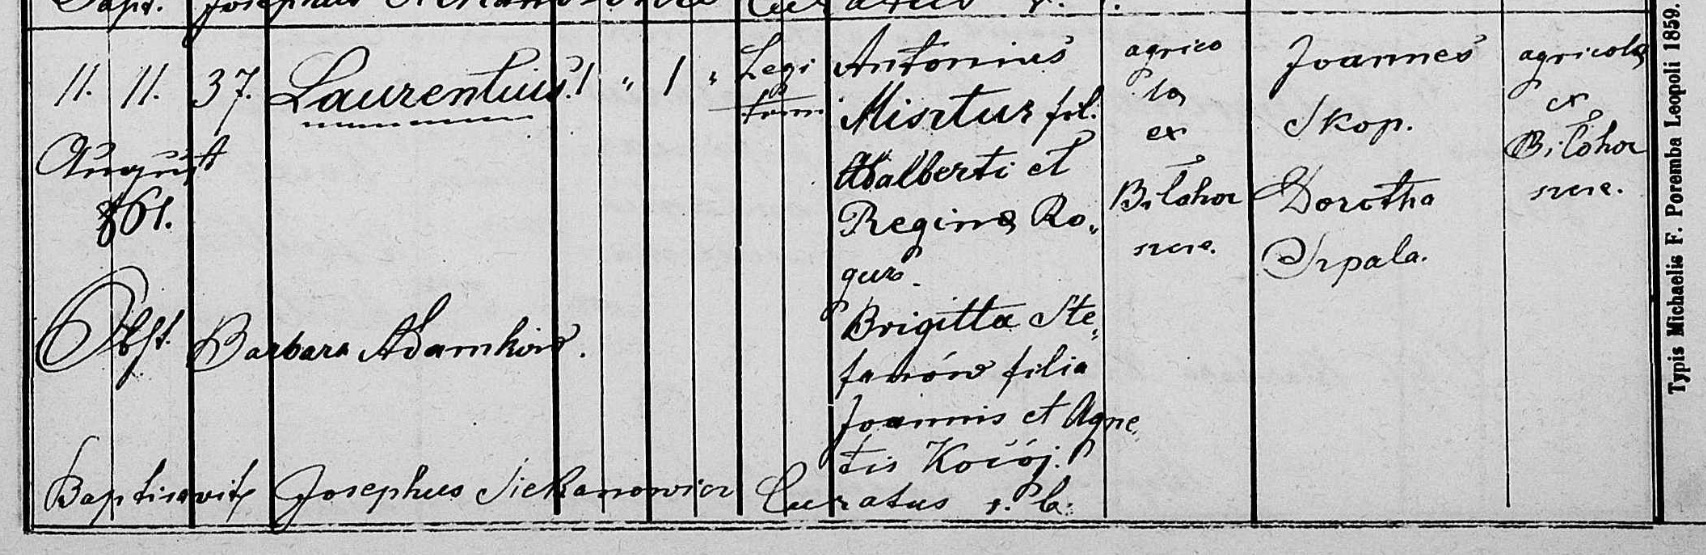 Bapt. Josephus Curatus r. l.
11. 11. 37. Laurentius. 1 " 1 " Legi
tim.
August
861.
Antonius
Misztur fil.
Adalberti et
Regina Ro„
gus.
Brigitta Ste„
fanów filia
Joannis et Agne„
tis Kocój.
agrico
la
ex
Biłohor
scze.
Joannes
Skop.
Dorotha
Szpala.
agricola
ex
Biłohor
scze.
Obst. Barbara Adamkow.
Baptisavit Josephus Siekanowicz Curatus r. l.
Typis Michaelis F. Poremba Leopoli 1859.